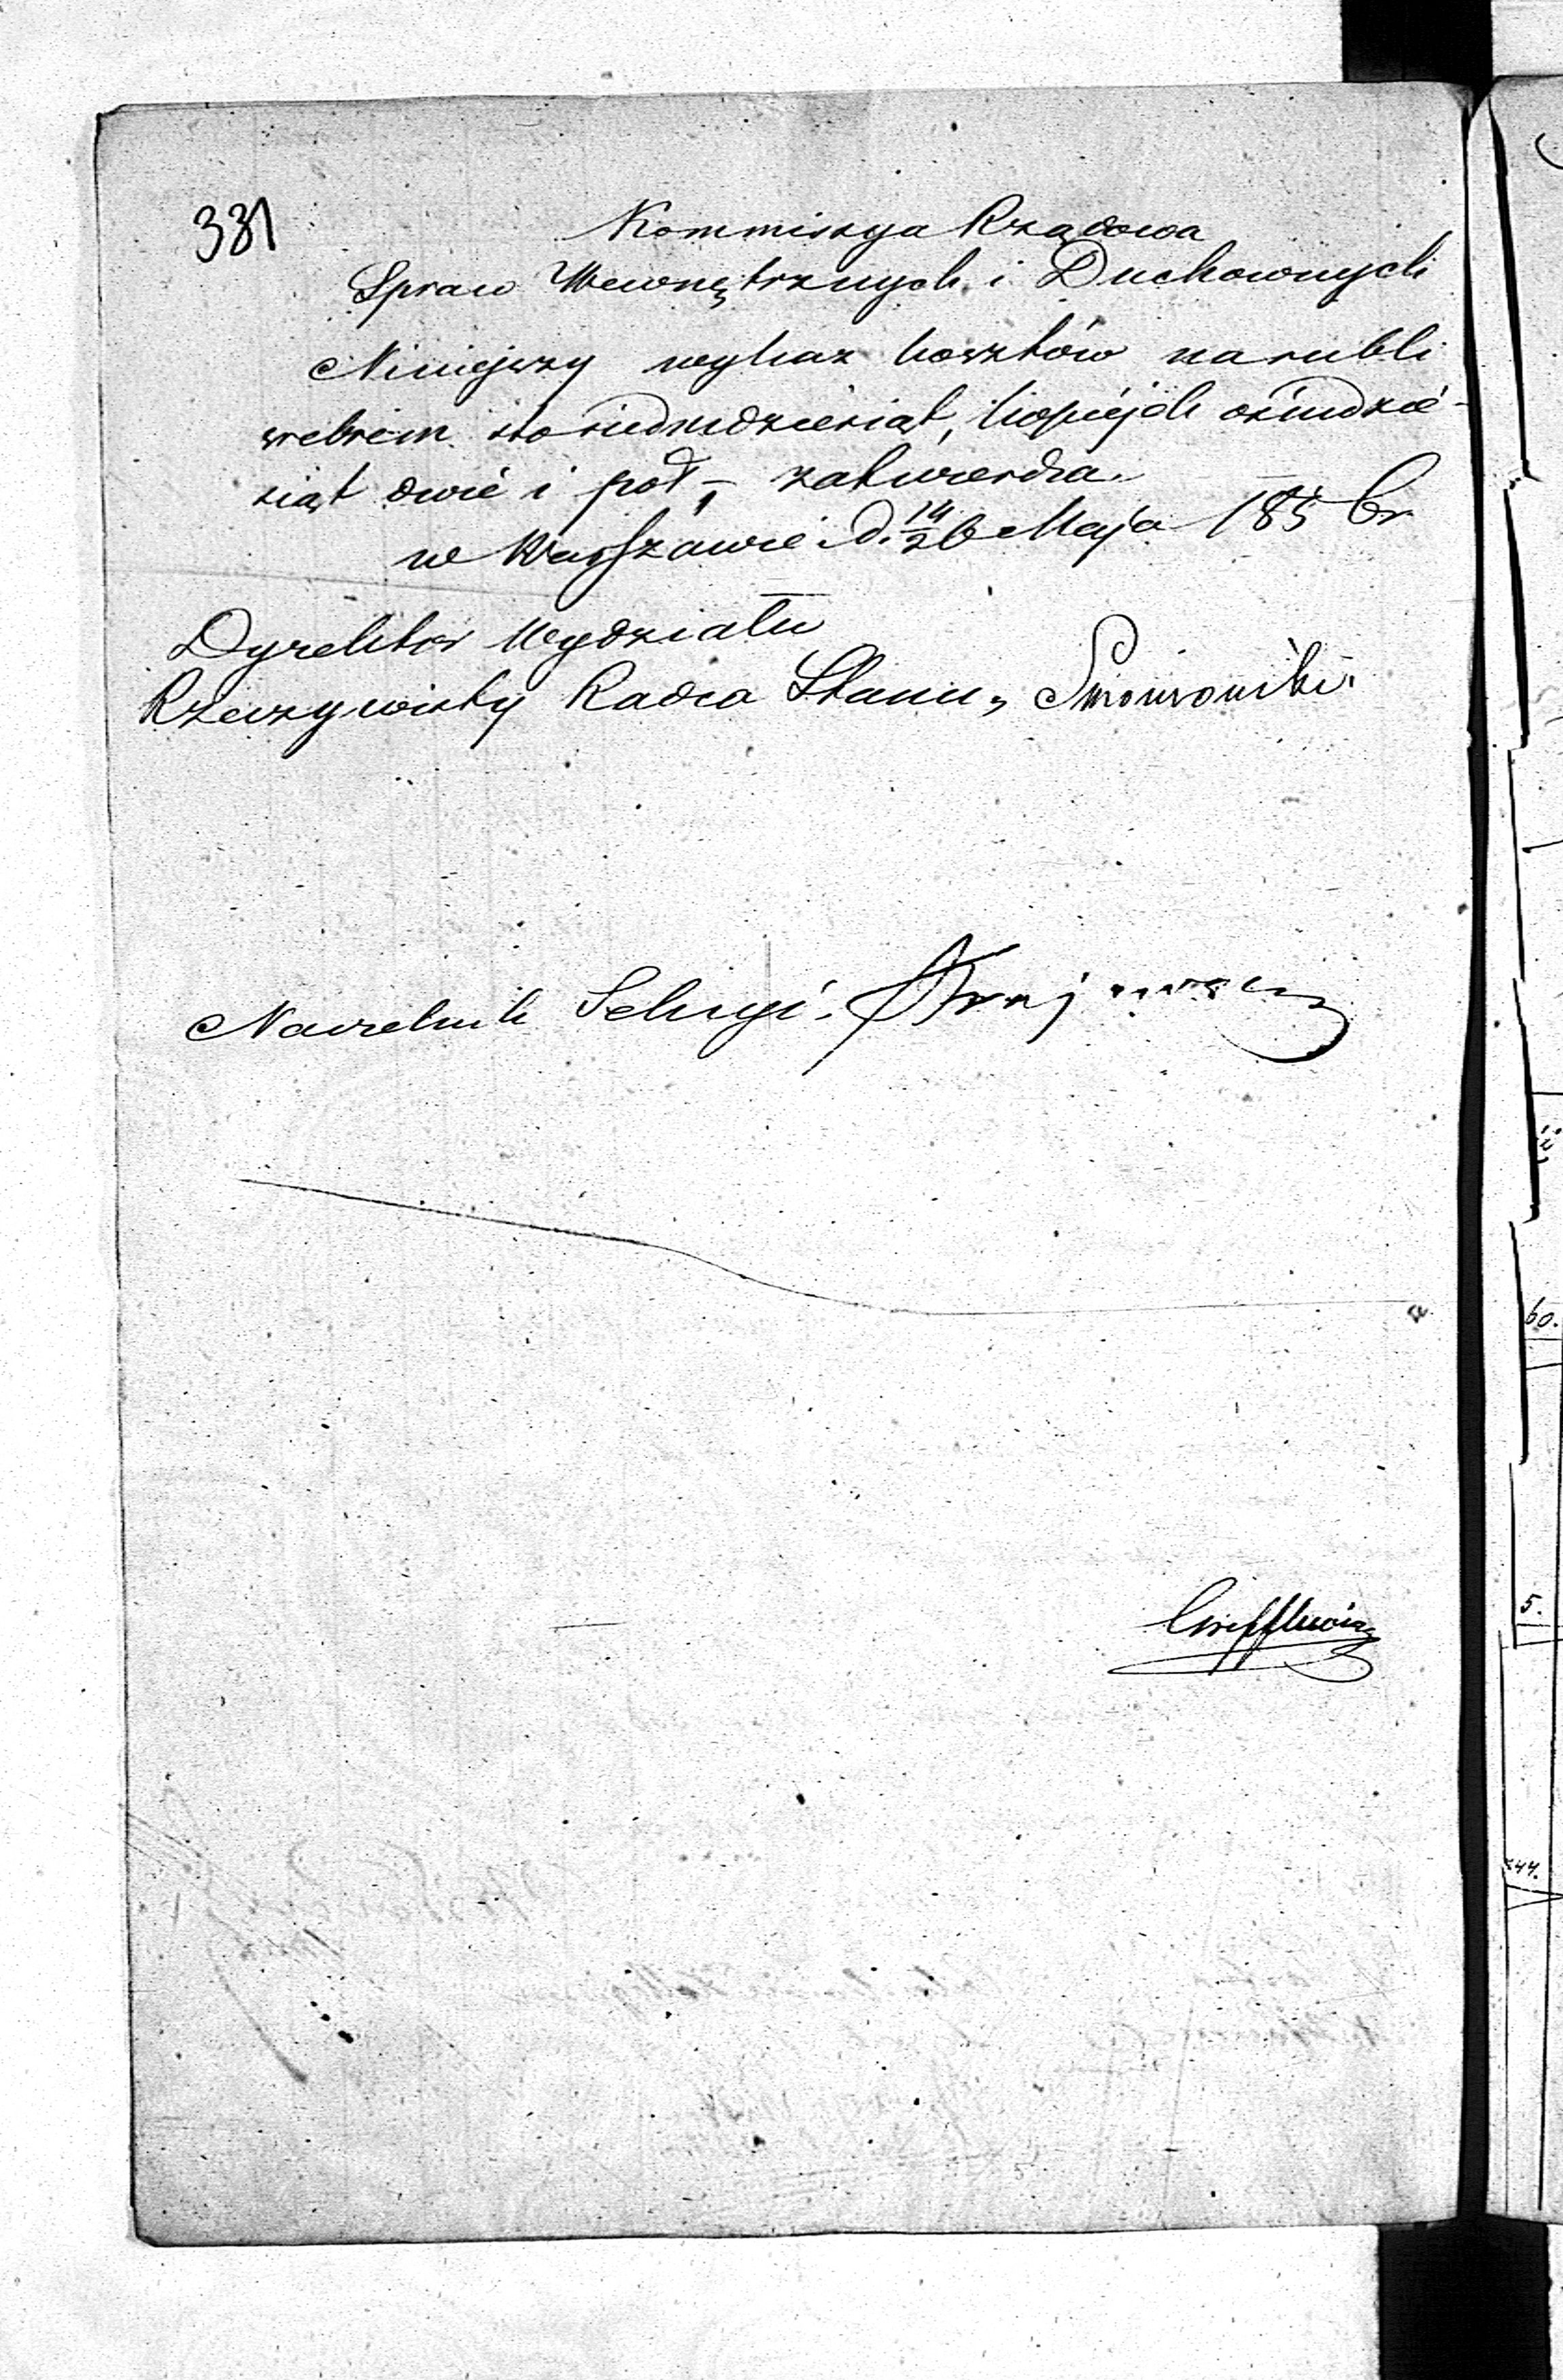 331
Kommissya Rządowa
Spraw Wewnętrznych i Duchownych
Niniejszy wykaz kosztów na rubli
srebrem sto siedmdziesiąt, kopiejek ośmdzie-
siąt dwie i pół, zatwierdza.
w Warszawie d. 14/26 Maja 1856 r
Dyrektor Wydziału
Rzeczywisty Radca Stanu,
Naczelnik Sekcyi